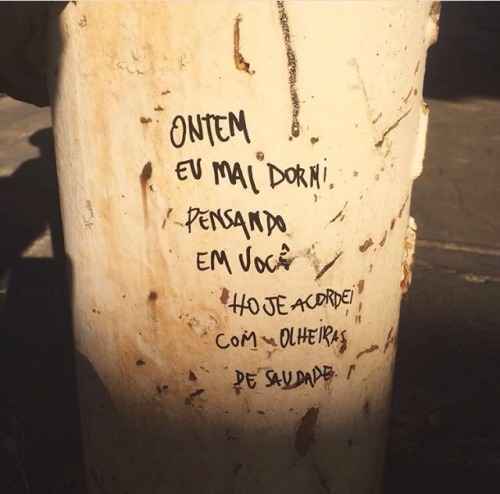 ONTEM
EU MAL DORMI
PENSANDO
EM VOCÊ
HOJE ACORDEI
COM OLHEIRAS
DE SAUDADE